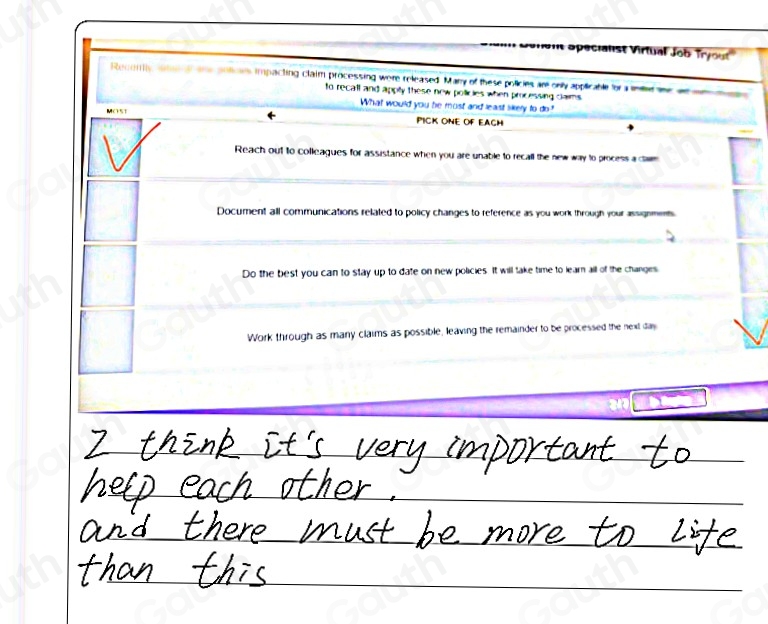 Benefit Specialist Virtual Job Tryout
impacting claim processing were released. Many of these policies are only applicable for a limited time
to recall and apply these new policies when processing claims.
What would you be most and least likely to do?
MOST
PICK ONE OF EACH
Reach out to colleagues for assistance when you are unable to recall the new way to process a claim
Document all communications related to policy changes to reference as you work through your assignments.
Do the best you can to stay up to date on new policies. It will take time to learn all of the changes.
Work through as many claims as possible, leaving the remainder to be processed the next day.
I think it's very important to
help each other.
and there must be more to life
than this
Gauth